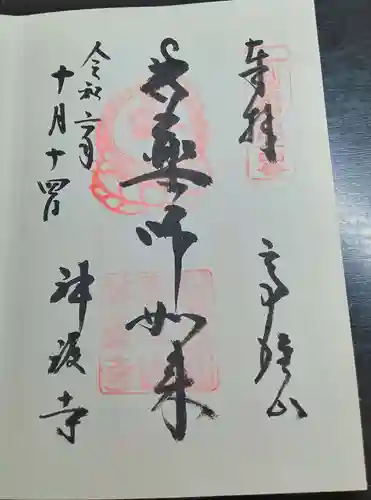 奉拝
高雄山
薬師如来
令和六年
十月十四日
神護寺